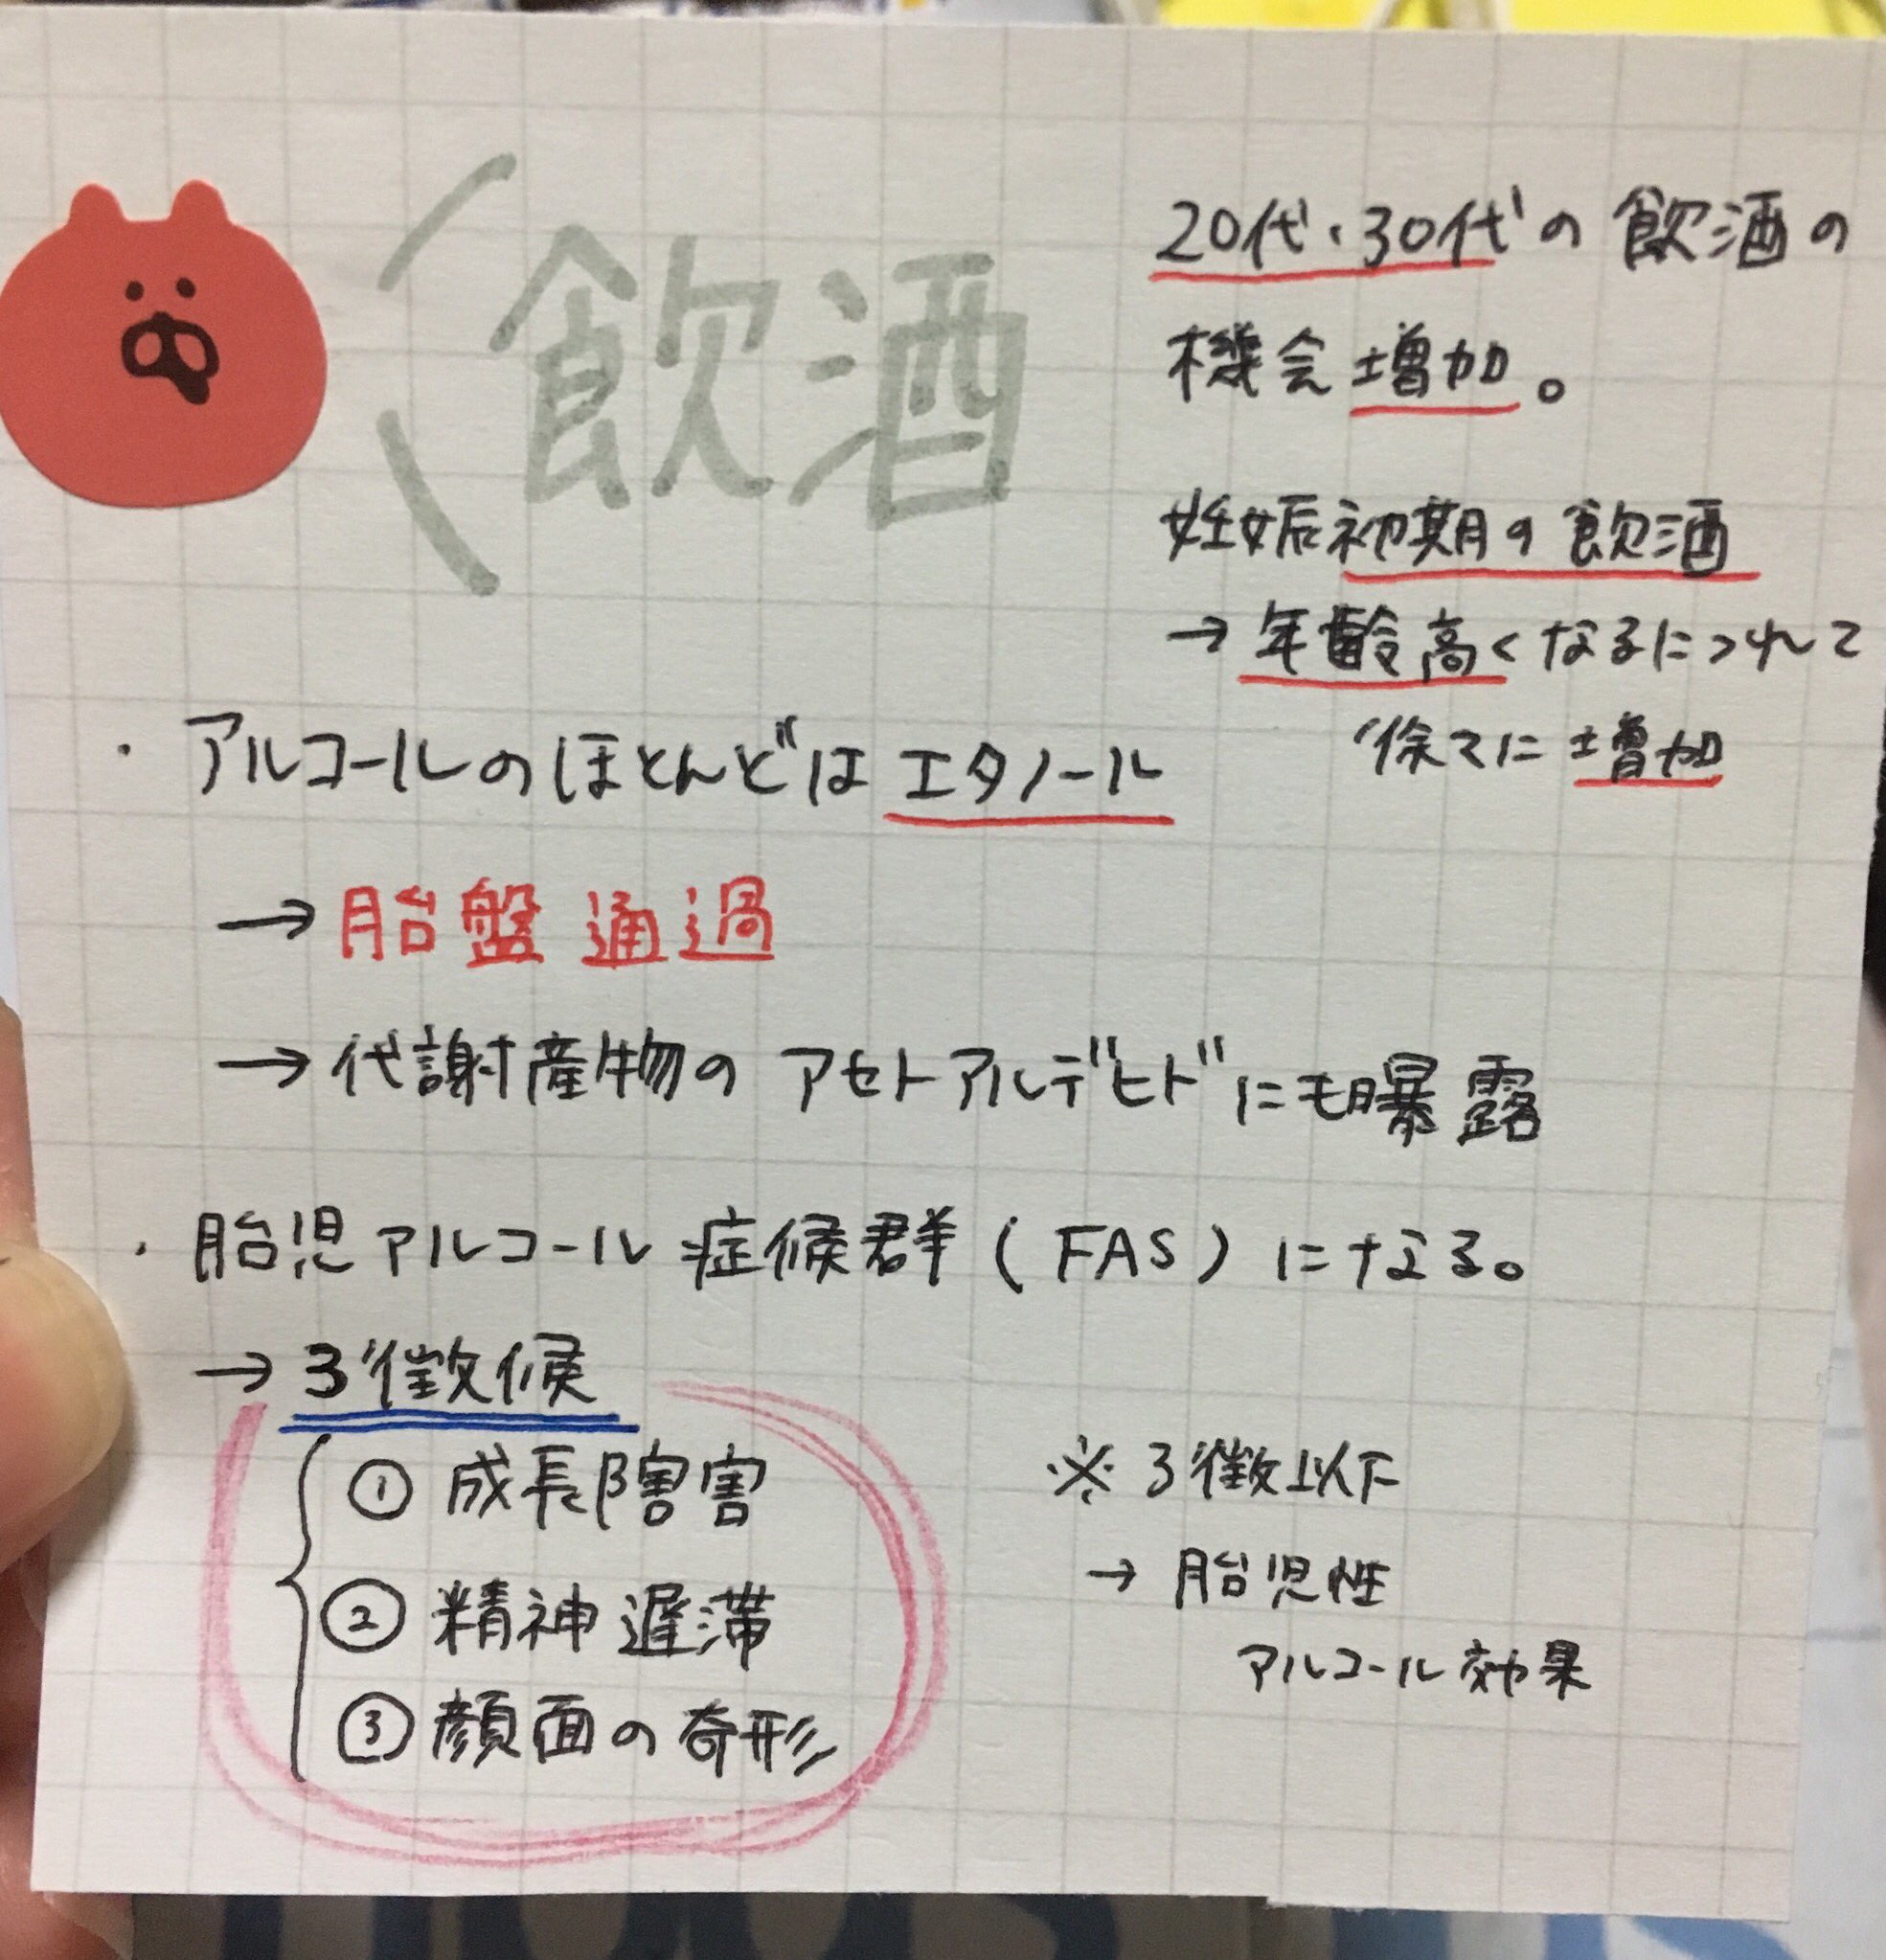 飲酒
20代・30代の飲酒の
機会増加。
妊娠初期の飲酒
→年齢高くなるにつれて
徐々に増加
・アルコールのほとんどはエタノール
→胎盤通過
→代謝産物のアセトアルデヒドにも曝露
・胎児アルコール症候群(FAS)になる。
→3徴候
①成長障害
②精神遅滞
③顔面の奇形
※3徴以下
→胎児性
アルコール効果